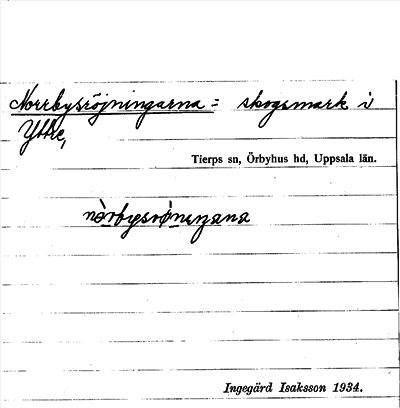 Norrbysröjningarna = skogsmark i
Yttre,
Tierps sn, Örbyhus hd, Uppsala län.
Ingegärd Isaksson 1934.